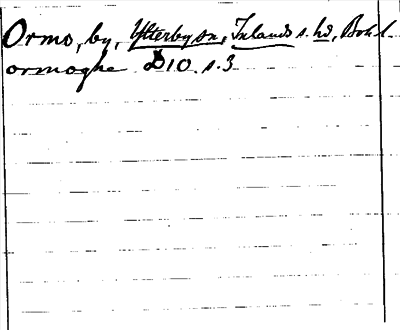 Ormo, by, Ytterby sn, Inlands s. hd, Bohl.
ormoghe D10 s. 3